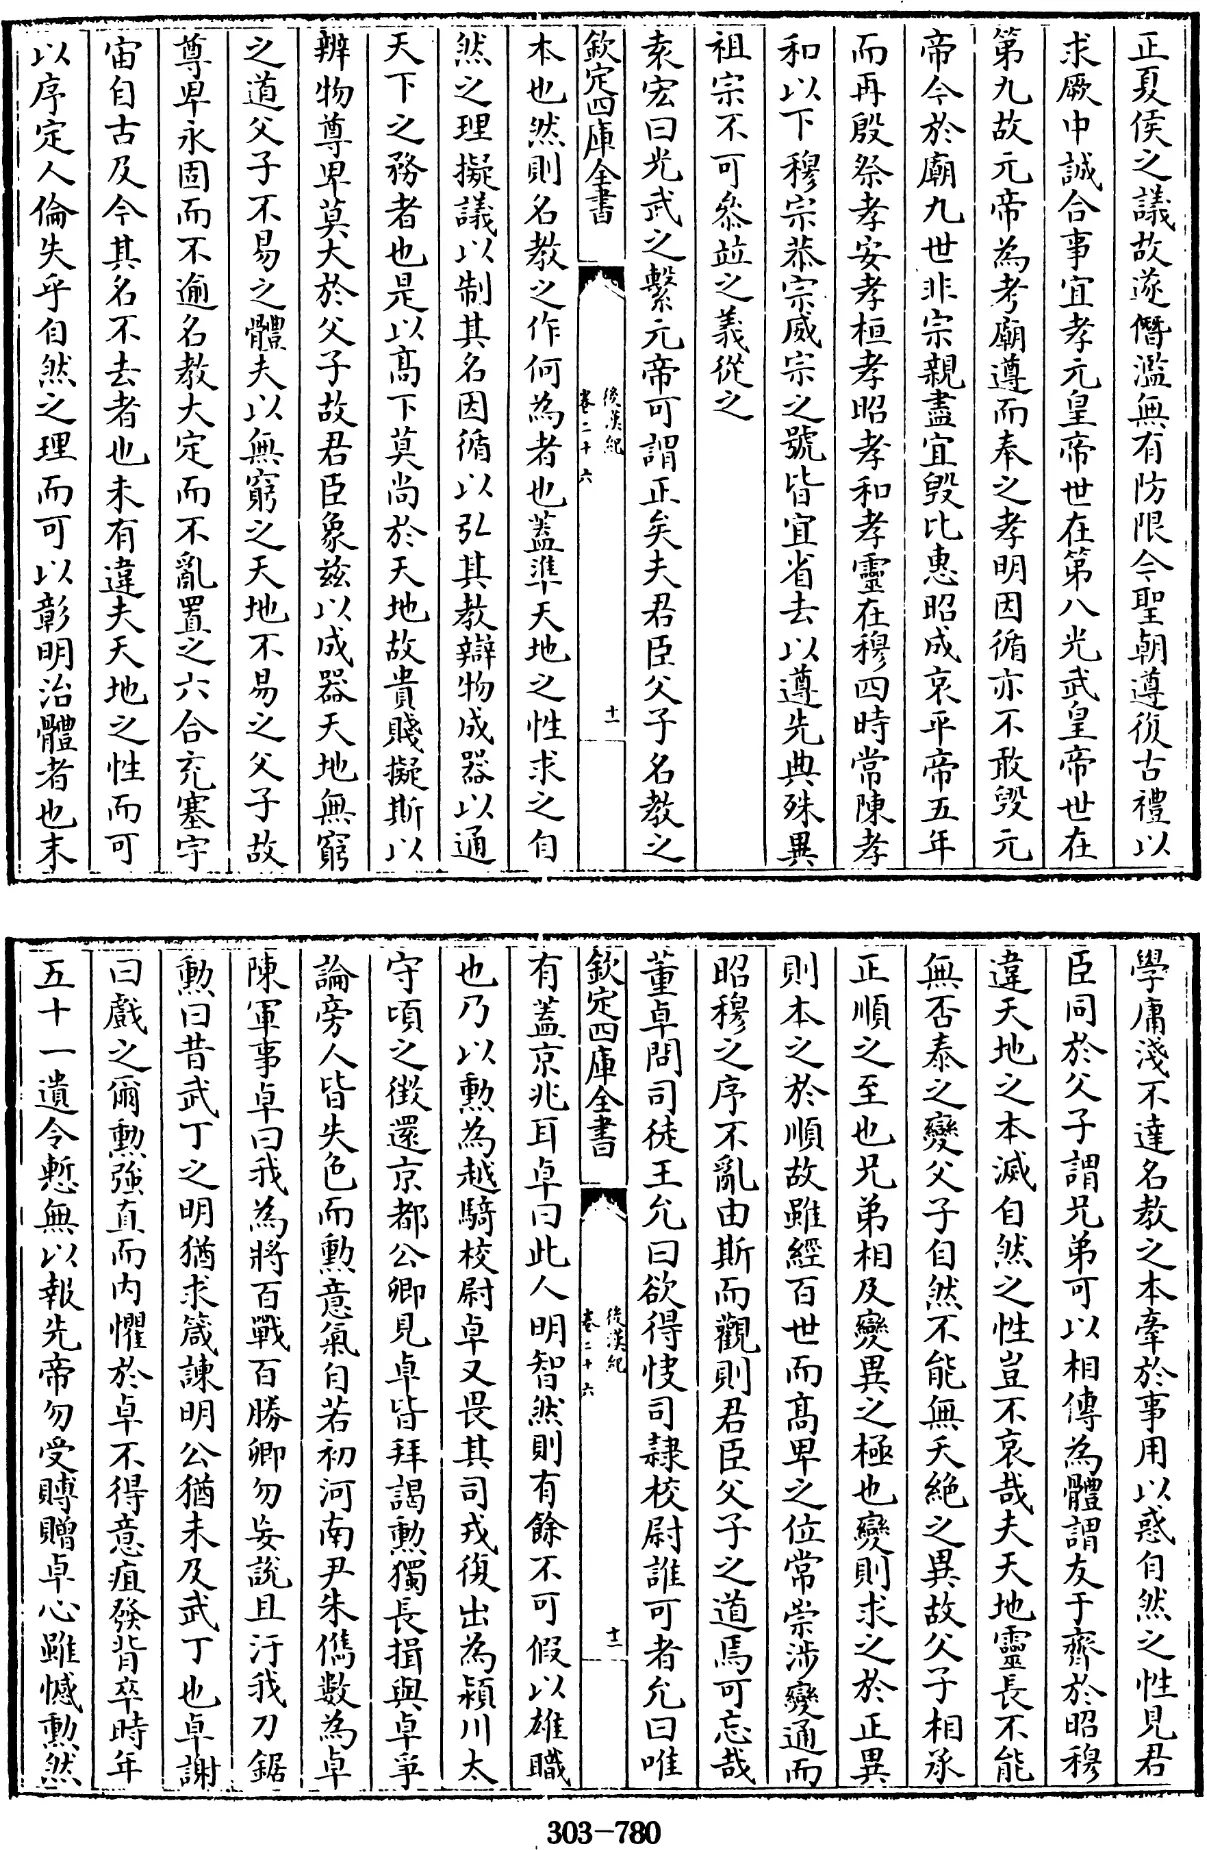 正夏侯之議故遂僭濫無有防限今聖朝遵復古禮以
求厥中誠合事宜孝元皇帝世在第八光武皇帝世在
第九故元帝為考廟遵而奉之孝明因循亦不敢毁元
帝今於廟九世非宗親盡宜毁比惠昭成哀平帝五年
而再殷祭孝安孝桓孝昭孝和孝靈在穆四時常陳孝
和以下穆宗恭宗威宗之號皆宜省去以遵先典殊異
祖宗不可叅竝之義從之
袁宏曰光武之繫元帝可謂正矣夫君臣父子名教之
欽定四庫全書
後漢紀
卷二十六
十一
本也然則名教之作何為者也蓋準天地之性求之自
然之理擬議以制其名因循以弘其教辯物成器以通
天下之務者也是以髙下莫尚於天地故貴賤擬斯以
辨物尊卑莫大於父子故君臣象兹以成器天地無窮
之道父子不易之體夫以無窮之天地不易之父子故
尊卑永固而不逾名教大定而不亂置之六合充塞宇
宙自古及今其名不去者也未有違夫天地之性而可
以序定人倫失乎自然之理而可以彰明治體者也末
學庸淺不達名教之本牽於事用以惑自然之性見君
臣同於父子謂兄弟可以相傳為體謂友于齊於昭穆
違天地之本滅自然之性豈不哀哉夫天地靈長不能
無否泰之變父子自然不能無夭絶之異故父子相承
正順之至也兄弟相及變異之極也變則求之於正異
則本之於順故雖經百世而髙卑之位常崇涉變通而
昭穆之序不亂由斯而觀則君臣父子之道焉可忘哉
董卓問司徒王允曰欲得快司隸校尉誰可者允曰唯
欽定四庫全書
後漢紀
卷二十六
十二
有蓋京兆耳卓曰此人明智然則有餘不可假以雄職
也乃以勲為越騎校尉卓又畏其司戎復出為潁川太
守頃之徴還京都公卿見卓皆拜謁勲獨長揖與卓爭
論旁人皆失色而勲意氣自若初河南尹朱儁數為卓
陳軍事卓曰我為將百戰百勝卿勿妄說且汙我刀鋸
勲曰昔武丁之明猶求箴諫明公猶未及武丁也卓謝
曰戲之爾勲強直而内懼於卓不得意疽發背卒時年
五十一遺令慙無以報先帝勿受賻贈卓心雖憾勲然
303-780